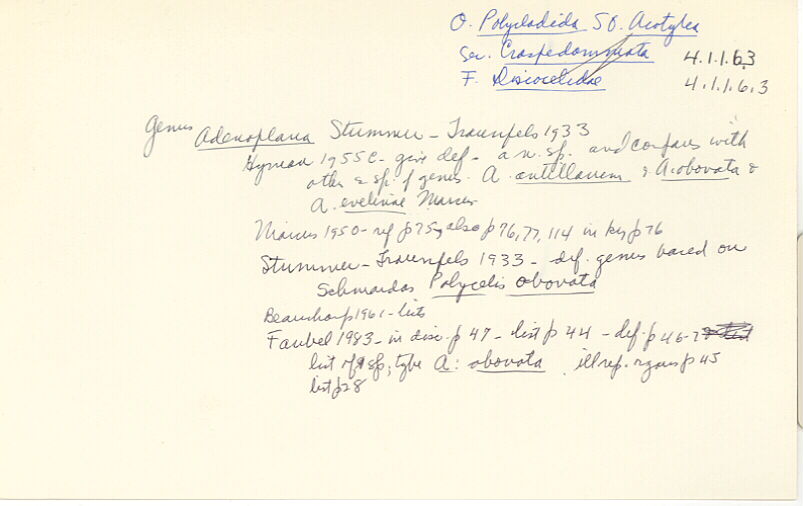 O. Polycladida SO. Acotylea
Ser. Craspedommata 4.1.1.6.3
F. Discocelidae 4.1.1.6.3
Genus Adenoplana Stummer-Traunfels 1933
Hyman 1955c - give def - a n. sp. and compares with
other 2 sp. of genus. A. antillarum & A. obovata &
A. evelinae Marcus
Marcus 1950 - ref p 75, also p 76, 77, 114 in key p 76
Stummer-Traunfels 1933 - def. genus based on
Schmardas Polycelis obovata
Beauchamp 1961 - lists
Faubel 1983 - in disc. p 47 - list p 44 - def. p 46-7
list of sp; type A: obovata ill rep. organs p 45
list p 28